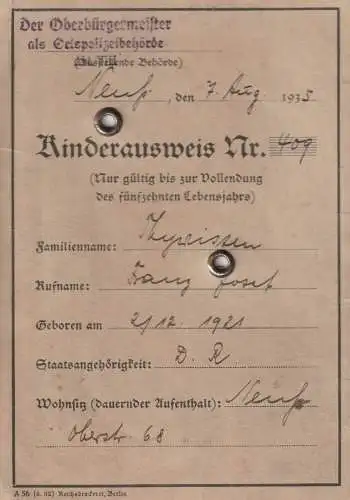 Der Oberbürgermeister
als Ortspolizeibehörde
(Ausstellende Behörde)
Neuß, den 7. Aug 1935
Kinderausweis Nr. 409
(Nur gültig bis zur Vollendung
des fünfzehnten Lebensjahrs)
Familienname: Thywissen
Rufname: Franz Josef
Geboren am 21/12. 1921
Staatsangehörigkeit: D. R
Wohnsitz (dauernder Aufenthalt): Neuß
Oberstr. 68
A 56 (6. 32) Reichsdruckerei, Berlin